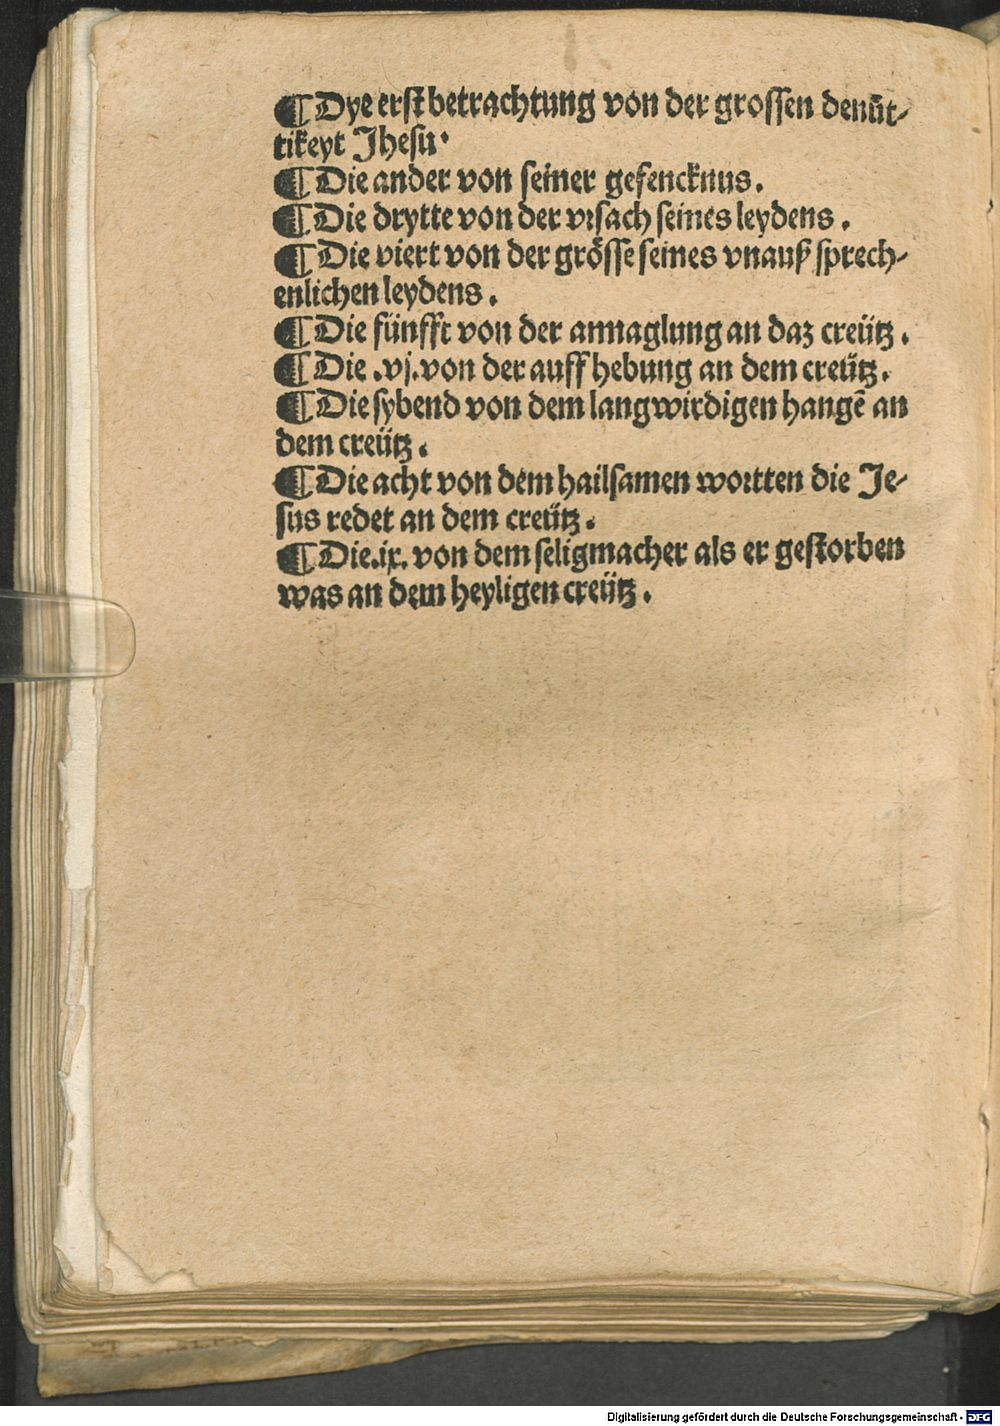 ¶ Dye erst betrachtung von der grossen deműt-
tikeyt Jhesu·
¶ Die ander von seiner gefencknus.
¶ Die drytte von der vrsach seines leydens.
¶ Die viert von der grösse seines vnauß sprech-
enlichen leydens.
¶ Die fünfft von der annaglung an daz creütz.
¶ Die .vj. von der auff hebung an dem creütz.
¶ Die sybend von dem langwirdigen hangē an
dem creütz.
¶ Die acht von dem hailsamen wortten die Je-
sus redet an dem creütz.
¶ Die .ix. von dem seligmacher als er gestorben
was an dem heyligen creütz.
Digitalisierung gefördert durch die Deutsche Forschungsgemeinschaft - DFG